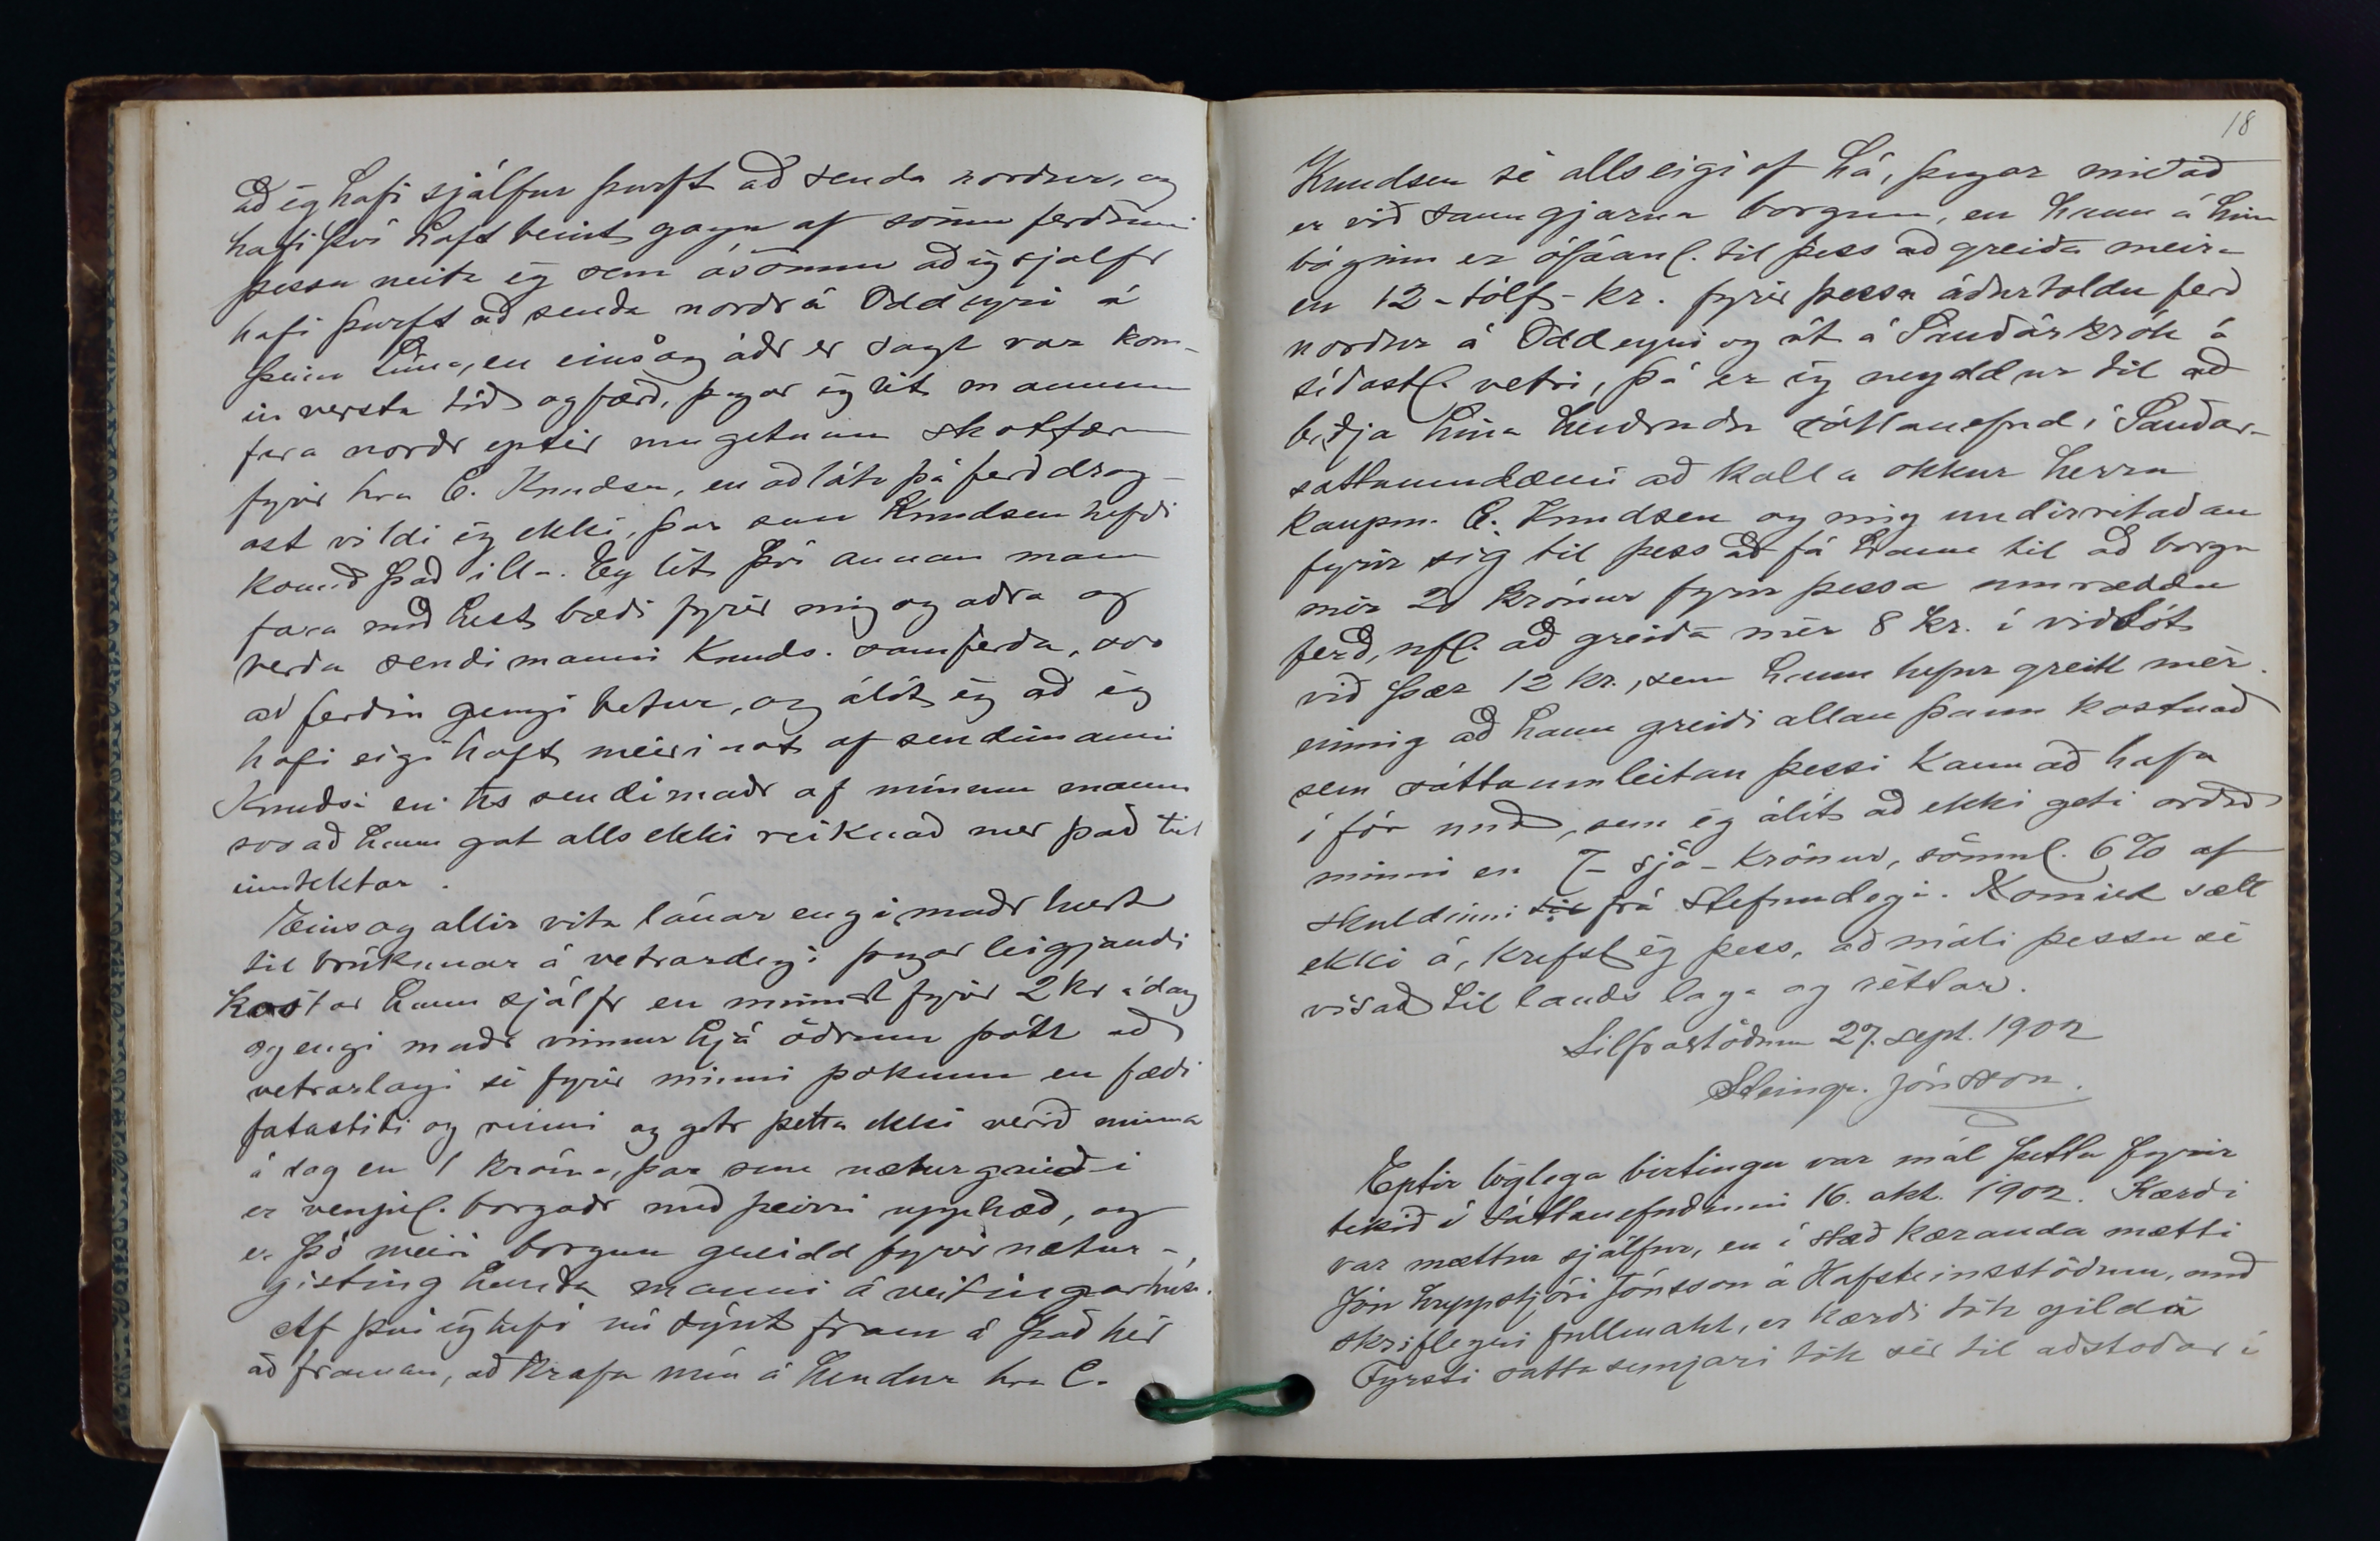 að ég hafi sjálfur þurft að senda norður, og
hafi því haft beint gagn af sömu ferðinni
þessu neita ég sem ósönnu að ég sjálfr
hafi þurft að senda norðr á Oddeyri á
þeim tíma, en eins og áðr er sagt var kom-
in versta tíð og færð, þegar ég lét manninn
fara norðr eptir umgetnum skotfærum
fyrir hra C. Knudsen, en að láta þá ferð drag-
ast vildi ég ekki, þar sem Knudsen hefði
komið það illa. Eg lét því annan mann
fara með hest bæði fyrir mig og aðra og
verða sendimanni Knuds. samferða, svo
að ferðin gengi betur, og álít ég að ég
hafi eigi haft meiri not af sendimanni
Knudsi en hs sendimaðr af mínum manni
svo að hann gat alls ekki reiknað mer það til
inntektar.
Eins og allir vita lánar engi maðr hest
til brúkunar á vetrardegi þegar leigjandi
kostar hann sjálfr en minnst fyrir 2 kr á dag
og engi maðr vinnur hjá öðrum þótt að
vetrarlagi sé fyrir minni þoknun en fæði
fatasliti og rúmi og getr þetta ekki verið minna
á dag en 1 króna, þar sem næturgreiði
er venjul. borgaðr með þeirri upphæð, og
er þó meiri borgun greidd fyrir nætur-
gisting handa manni á veitingarhúsi.
Af því ég hefi nú sýnt fram á það hér
að framan, að krafa mín á hendur hra C.
18
Knudsen sé alls eigi of há, þegar miðað
er við sanngjarna borgun, en hann á hinn
bóginn er ófáanl. til þess að greiða meira
en 12 - tólf - kr. fyrir þessa áðurtöldu ferð
norður á Oddeyri og út á Sauðárkrók á
síðastl. vetri, þá er ég neyddur til að
biðja hina heiðruðu sáttanefnd í Sauðár-
sáttaumdæmi að kalla okkur herra
kaupm. C. Knudsen og mig undirritaðan
fyrir sig til þess að fá hann til að borga
mér 20 krónur fyrir þessa umræddu
ferð, nfl. að greiða mér 8 kr. í viðbót
við þær 12 kr., sem hann hefur greitt mér.
einnig að hann greiði allan þann kostnað
sem sáttaumleitan þessi kann að hafa
í för með, sem ég álít að ekki geti orðið
minni en 7 - sjö - krónur, sömul. 6% af
skuldinni til frá stefnudegi. Komist sætt
ekki á, krefst ég þess, að máli þessu sé
vísað til lands laga og réttar.
Silfrastöðum 27. sept. 1902
Steingr. Jónsson.
Eptir löglega birtingu var mál þetta fyrir
tekið í sáttanefndinni 16. okt. 1902. Kærði
var mættur sjálfur, en í stað kæranda mætti
Jón hreppstjóri Jónsson á Hafsteinsstöðum, með
skriflegri fullmakt, er kærði tók gilda
Fyrsti sáttasemjari tók sér til aðstoðar í